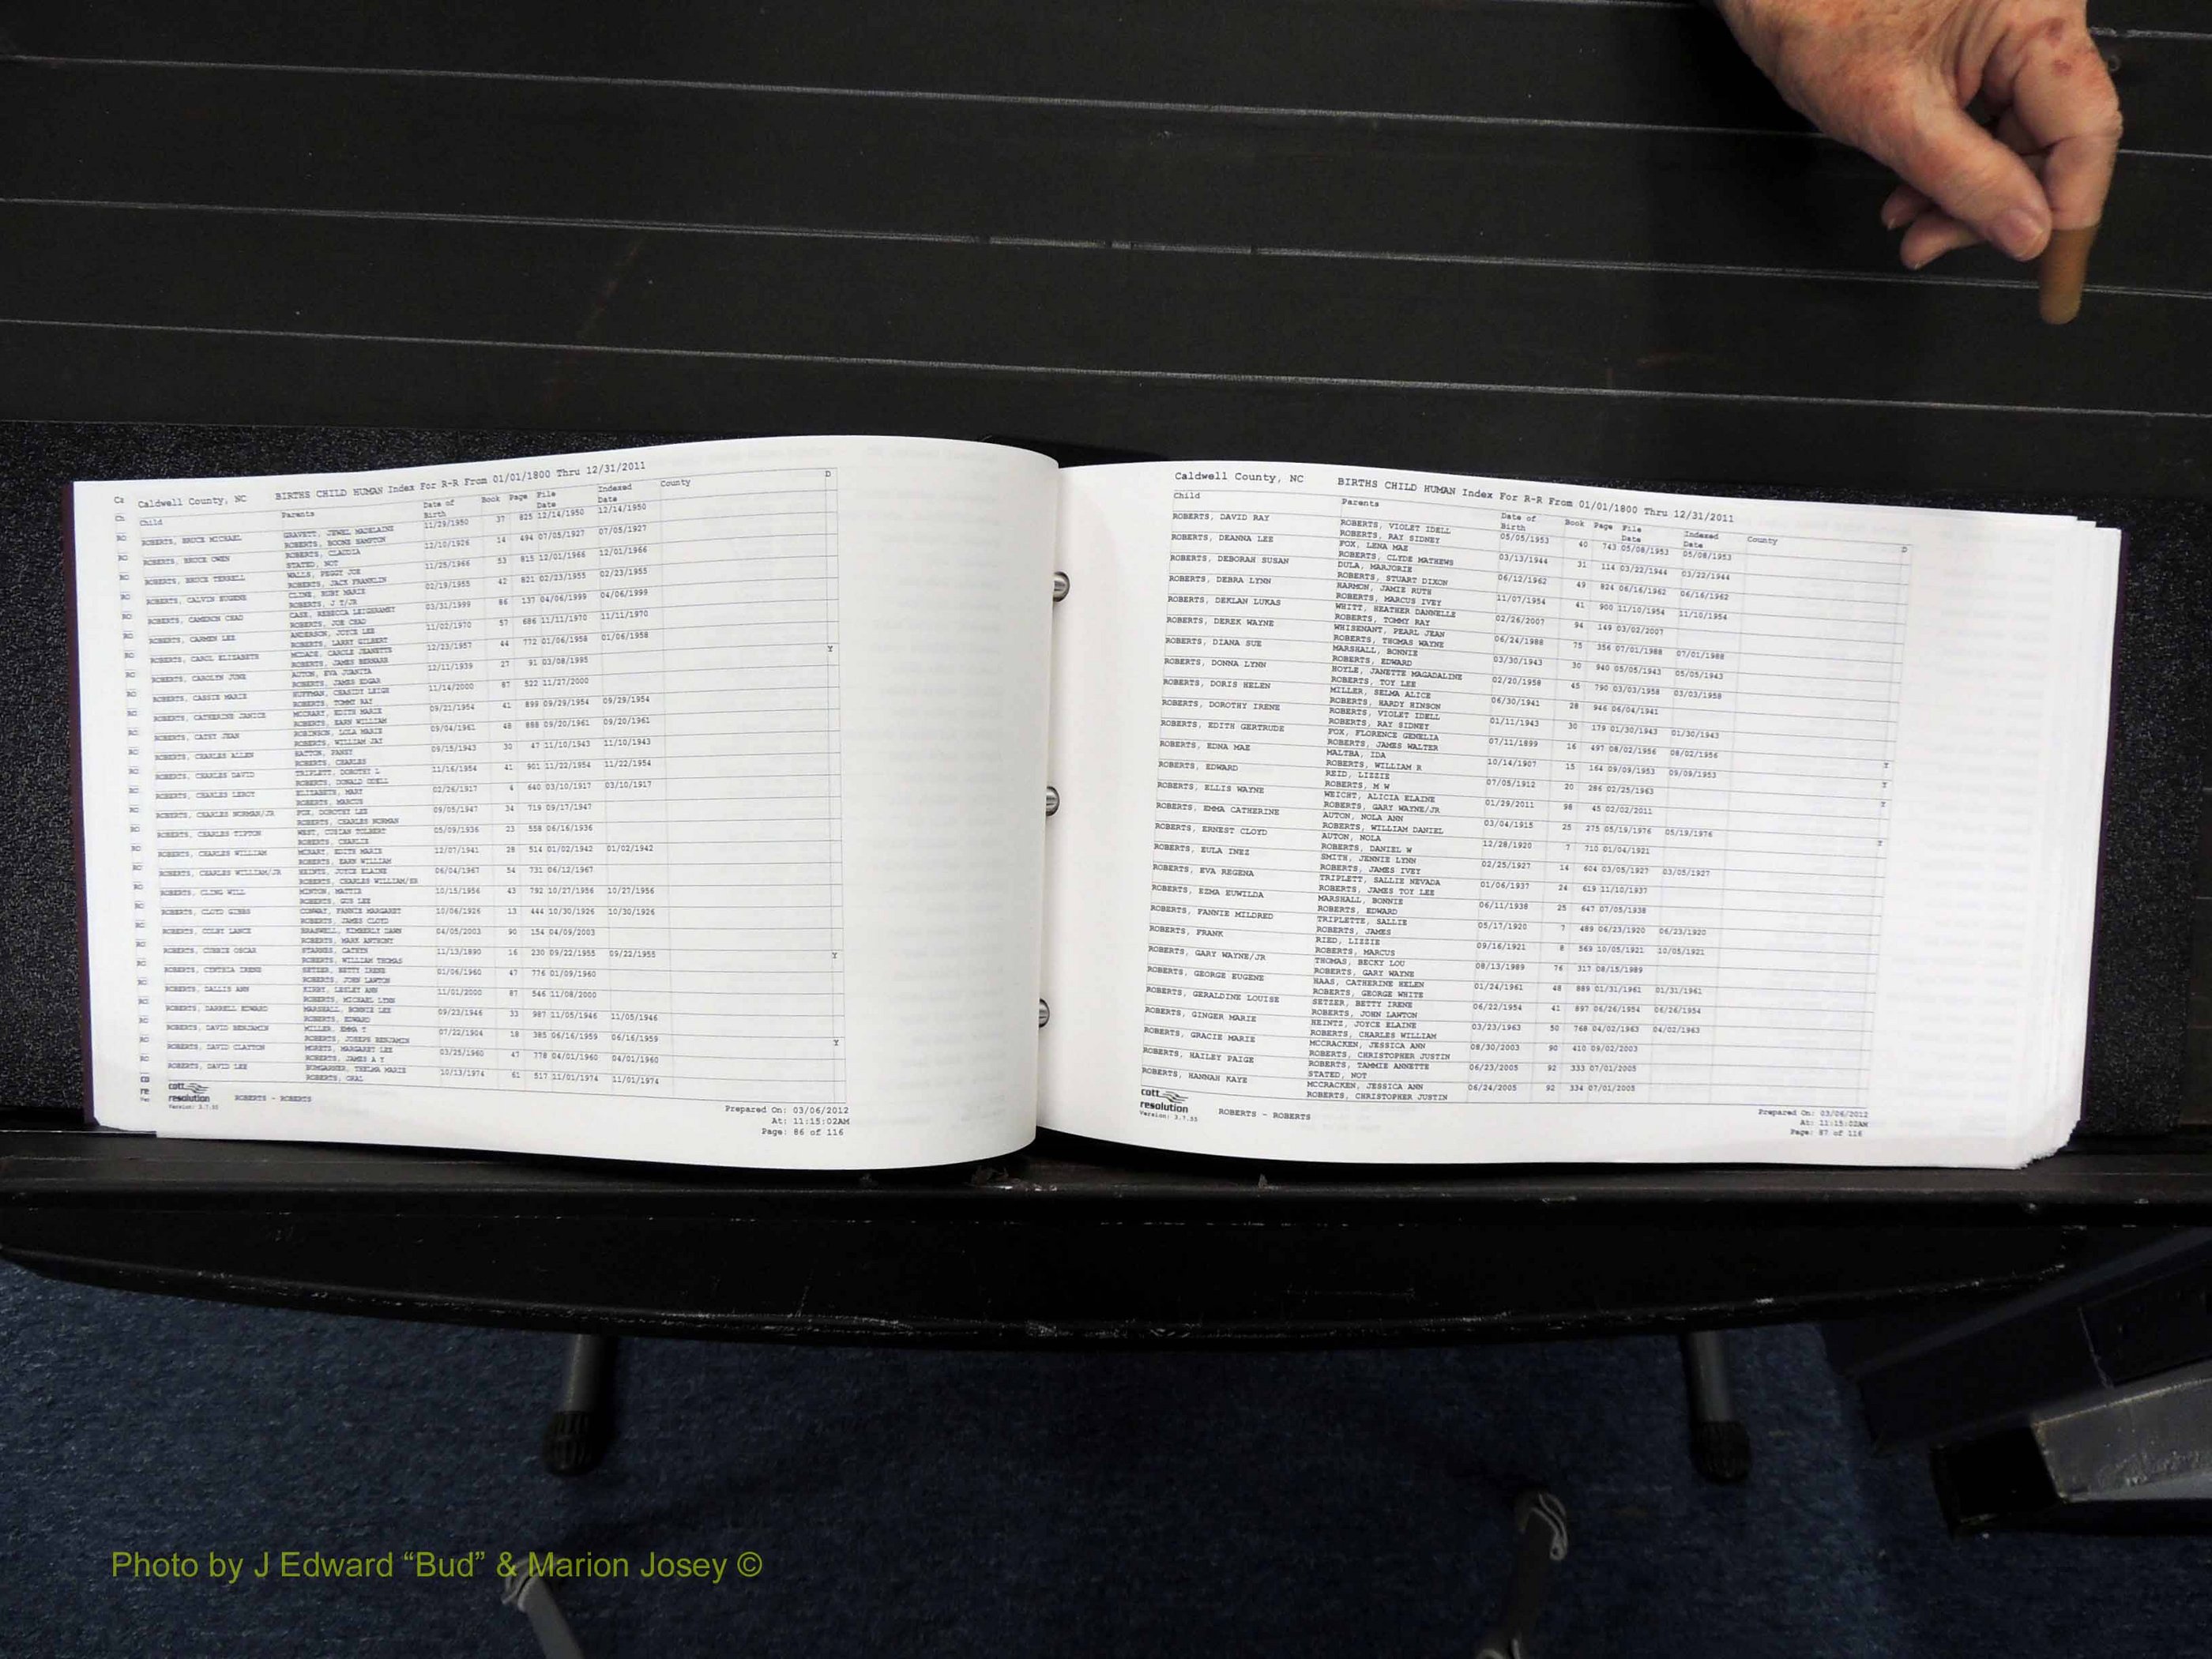 Caldwell County, NC BIRTHS CHILD HUMAN Index For R-R From 01/01/1800 Thru 12/31/2011
Child Parents Date of Birth Book Page File Date Indexed Date County D
ROBERTS, BRUCE MICHAEL GRAVETT, JEWEL MADELAINE 11/29/1950 37 825 12/14/1950 12/14/1950
ROBERTS, BOONE HAMPTON
ROBERTS, BRUCE OWEN ROBERTS, CLAUDIA 12/10/1926 14 494 07/05/1927 07/05/1927
STATED, NOT
ROBERTS, BRUCE TERRELL WALLS, PEGGY JOE 11/25/1966 53 815 12/01/1966 12/01/1966
ROBERTS, JACK FRANKLIN
ROBERTS, CALVIN EUGENE CLINE, RUBY MARIE 02/19/1955 42 821 02/23/1955 02/23/1955
ROBERTS, J T/JR
ROBERTS, CAMERON CHAD CASE, REBECCA 03/31/1999 86 137 04/06/1999 04/06/1999
ROBERTS, JOE CHAD
ROBERTS, CARMEN LEE ANDERSON, JOYCE LEE 11/02/1970 57 686 11/11/1970 11/11/1970
ROBERTS, LARRY GILBERT
ROBERTS, CAROL ELIZABETH MCDADE, CAROLE JEANETTE 12/23/1957 44 772 01/06/1958 01/06/1958
ROBERTS, JAMES BERNARR
ROBERTS, CAROLYN JUNE AUTON, EVA JUANITA 12/11/1939 27 91 03/08/1995 Y
ROBERTS, JAMES EDGAR
ROBERTS, CASSIE MARIE HUFFMAN, CHASIDY LEIGH 11/14/2000 87 522 11/27/2000
ROBERTS, TOMMY RAY
ROBERTS, CATHERINE JANICE MCCRARY, EDITH MARIE 09/21/1954 41 899 09/29/1954 09/29/1954
ROBERTS, EARN WILLIAM
ROBERTS, CATHY JEAN ROBINSON, LOLA MARIE 09/04/1961 48 888 09/20/1961 09/20/1961
ROBERTS, WILLIAM JAY
ROBERTS, CHARLES ALLEN HATTON, PANSY 09/15/1943 30 47 11/10/1943 11/10/1943
ROBERTS, CHARLES
ROBERTS, CHARLES DAVID TRIPLETT, DOROTHY L 11/16/1954 41 901 11/22/1954 11/22/1954
ROBERTS, DONALD ODELL
ROBERTS, CHARLES LEROY ELIZABETH, MARY 02/26/1917 4 640 03/10/1917 03/10/1917
ROBERTS, MARCUS
ROBERTS, CHARLES NORMAN/JR FOX, DOROTHY LEE 09/05/1947 34 719 09/17/1947
ROBERTS, CHARLES NORMAN
ROBERTS, CHARLES TIPTON WEST, TOLBERT 05/09/1936 23 558 06/16/1936
ROBERTS, CHARLIE
ROBERTS, CHARLES WILLIAM MCRARY, EDITH MARIE 12/07/1941 28 514 01/02/1942 01/02/1942
ROBERTS, EARN WILLIAM
ROBERTS, CHARLES WILLIAM/JR HEINTZ, JOYCE ELAINE 06/04/1967 54 731 06/12/1967
ROBERTS, CHARLES WILLIAM/SR
ROBERTS, CLING WILL MINTON, MATTIE 10/15/1956 43 792 10/27/1956 10/27/1956
ROBERTS, GUS LEE
ROBERTS, CLOYD GIBBS CONWAY, FANNIE MARGARET 10/06/1926 13 444 10/30/1926 10/30/1926
ROBERTS, JAMES CLOYD
ROBERTS, COLBY LANCE BRASWELL, KIMBERLY DAWN 04/05/2003 90 154 04/09/2003
ROBERTS, MARK ANTHONY
ROBERTS, CURRIE OSCAR STARNES, CATHYN 11/13/1890 16 230 09/22/1955 09/22/1955 Y
ROBERTS, WILLIAM THOMAS
ROBERTS, CYNTHIA IRENE SETZER, BETTY IRENE 01/06/1960 47 776 01/09/1960
ROBERTS, JOHN LAWTON
ROBERTS, DALLIS ANN KIRBY, LESLEY ANN 11/01/2000 87 546 11/08/2000
ROBERTS, MICHAEL LYNN
ROBERTS, DARRELL EDWARD MARSHALL, BONNIE LEE 09/23/1946 33 987 11/05/1946 11/05/1946
ROBERTS, EDWARD
ROBERTS, DAVID BENJAMIN MILLER, EMMA T 07/22/1904 18 385 06/16/1959 06/16/1959 Y
ROBERTS, JOSEPH BENJAMIN
ROBERTS, DAVID CLAYTON MORETZ, MARGARET LEE 03/25/1960 47 778 04/01/1960 04/01/1960
ROBERTS, JAMES A Y
ROBERTS, DAVID LEE BUMGARNER, THELMA MARIE 10/13/1974 61 517 11/01/1974 11/01/1974
ROBERTS, ORAL
cott
resolution
Version: 3.7.50
ROBERTS - ROBERTS
Prepared On: 03/06/2012
At: 11:15:02AM
Page: 86 of 116
Caldwell County, NC BIRTHS CHILD HUMAN Index For R-R From 01/01/1800 Thru 12/31/2011
Child Parents Date of Birth Book Page File Date Indexed Date County D
ROBERTS, DAVID RAY ROBERTS, VIOLET IDELL 05/05/1953 40 743 05/08/1953 05/08/1953
ROBERTS, RAY SIDNEY
ROBERTS, DEANNA LEE FOX, LENA MAE 03/13/1944 31 114 03/22/1944 03/22/1944
ROBERTS, CLYDE MATHEWS
ROBERTS, DEBORAH SUSAN DULA, MARJORIE 06/12/1962 49 824 06/16/1962 06/16/1962
ROBERTS, STUART DIXON
ROBERTS, DEBRA LYNN HARMON, JAMIE RUTH 11/07/1954 41 900 11/10/1954 11/10/1954
ROBERTS, MARCUS IVEY
ROBERTS, DEKLAN LUKAS WHITT, HEATHER DANNELLE 02/26/2007 94 149 03/02/2007
ROBERTS, TOMMY RAY
ROBERTS, DEREK WAYNE WHISENANT, PEARL JEAN 06/24/1988 75 356 07/01/1988 07/01/1988
ROBERTS, THOMAS WAYNE
ROBERTS, DIANA SUE MARSHALL, BONNIE 03/30/1943 30 940 05/05/1943 05/05/1943
ROBERTS, EDWARD
ROBERTS, DONNA LYNN HOYLE, JANETTE MAGADALINE 02/20/1958 45 790 03/03/1958 03/03/1958
ROBERTS, TOY LEE
ROBERTS, DORIS HELEN MILLER, SELMA ALICE 06/30/1941 28 946 06/04/1941
ROBERTS, HARDY HINSON
ROBERTS, DOROTHY IRENE ROBERTS, VIOLET IDELL 01/11/1943 30 179 01/30/1943 01/30/1943
ROBERTS, RAY SIDNEY
ROBERTS, EDITH GERTRUDE FOX, FLORENCE GENELIA 07/11/1899 16 497 08/02/1956 08/02/1956 Y
ROBERTS, JAMES WALTER
ROBERTS, EDNA MAE MALTBA, IDA 10/14/1907 15 164 09/09/1953 09/09/1953 Y
ROBERTS, WILLIAM R
ROBERTS, EDWARD REID, LIZZIE 07/05/1912 20 286 02/25/1963 Y
ROBERTS, M W
ROBERTS, ELLIS WAYNE WEICHT, ALICIA ELAINE 01/29/2011 98 45 02/02/2011
ROBERTS, GARY WAYNE/JR
ROBERTS, EMMA CATHERINE AUTON, NOLA ANN 03/04/1915 25 275 05/19/1976 05/19/1976 Y
ROBERTS, WILLIAM DANIEL
ROBERTS, ERNEST CLOYD AUTON, NOLA 12/28/1920 7 710 01/04/1921
ROBERTS, DANIEL W
ROBERTS, EULA INEZ SMITH, JENNIE LYNN 02/25/1927 14 604 03/05/1927 03/05/1927
ROBERTS, JAMES IVEY
ROBERTS, EVA REGENA TRIPLETT, SALLIE NEVADA 01/06/1937 24 619 11/10/1937
ROBERTS, JAMES TOY LEE
ROBERTS, EZMA EUWILDA MARSHALL, BONNIE 06/11/1938 25 647 07/05/1938
ROBERTS, EDWARD
ROBERTS, FANNIE MILDRED TRIPLETTE, SALLIE 05/17/1920 7 489 06/23/1920 06/23/1920
ROBERTS, JAMES
ROBERTS, FRANK RIED, LIZZIE 09/16/1921 8 569 10/05/1921 10/05/1921
ROBERTS, MARCUS
ROBERTS, GARY WAYNE/JR THOMAS, BECKY LOU 08/13/1989 76 317 08/15/1989
ROBERTS, GARY WAYNE
ROBERTS, GEORGE EUGENE HAAS, CATHERINE HELEN 01/24/1961 48 889 01/31/1961 01/31/1961
ROBERTS, GEORGE WHITE
ROBERTS, GERALDINE LOUISE SETZER, BETTY IRENE 06/22/1954 41 897 06/26/1954 06/26/1954
ROBERTS, JOHN LAWTON
ROBERTS, GINGER MARIE HEINTZ, JOYCE ELAINE 03/23/1963 50 768 04/02/1963 04/02/1963
ROBERTS, CHARLES WILLIAM
ROBERTS, GRACIE MARIE MCCRACKEN, JESSICA ANN 08/30/2003 90 410 09/02/2003
ROBERTS, CHRISTOPHER JUSTIN
ROBERTS, HAILEY PAIGE ROBERTS, TAMMIE ANNETTE 06/23/2005 92 333 07/01/2005
STATED, NOT
ROBERTS, HANNAH KAYE MCCRACKEN, JESSICA ANN 06/24/2005 92 334 07/01/2005
ROBERTS, CHRISTOPHER JUSTIN
cott
resolution
Version: 3.7.50
ROBERTS - ROBERTS
Prepared On: 03/06/2012
At: 11:15:02AM
Page: 87 of 116
Photo by J Edward “Bud” & Marion Josey ©